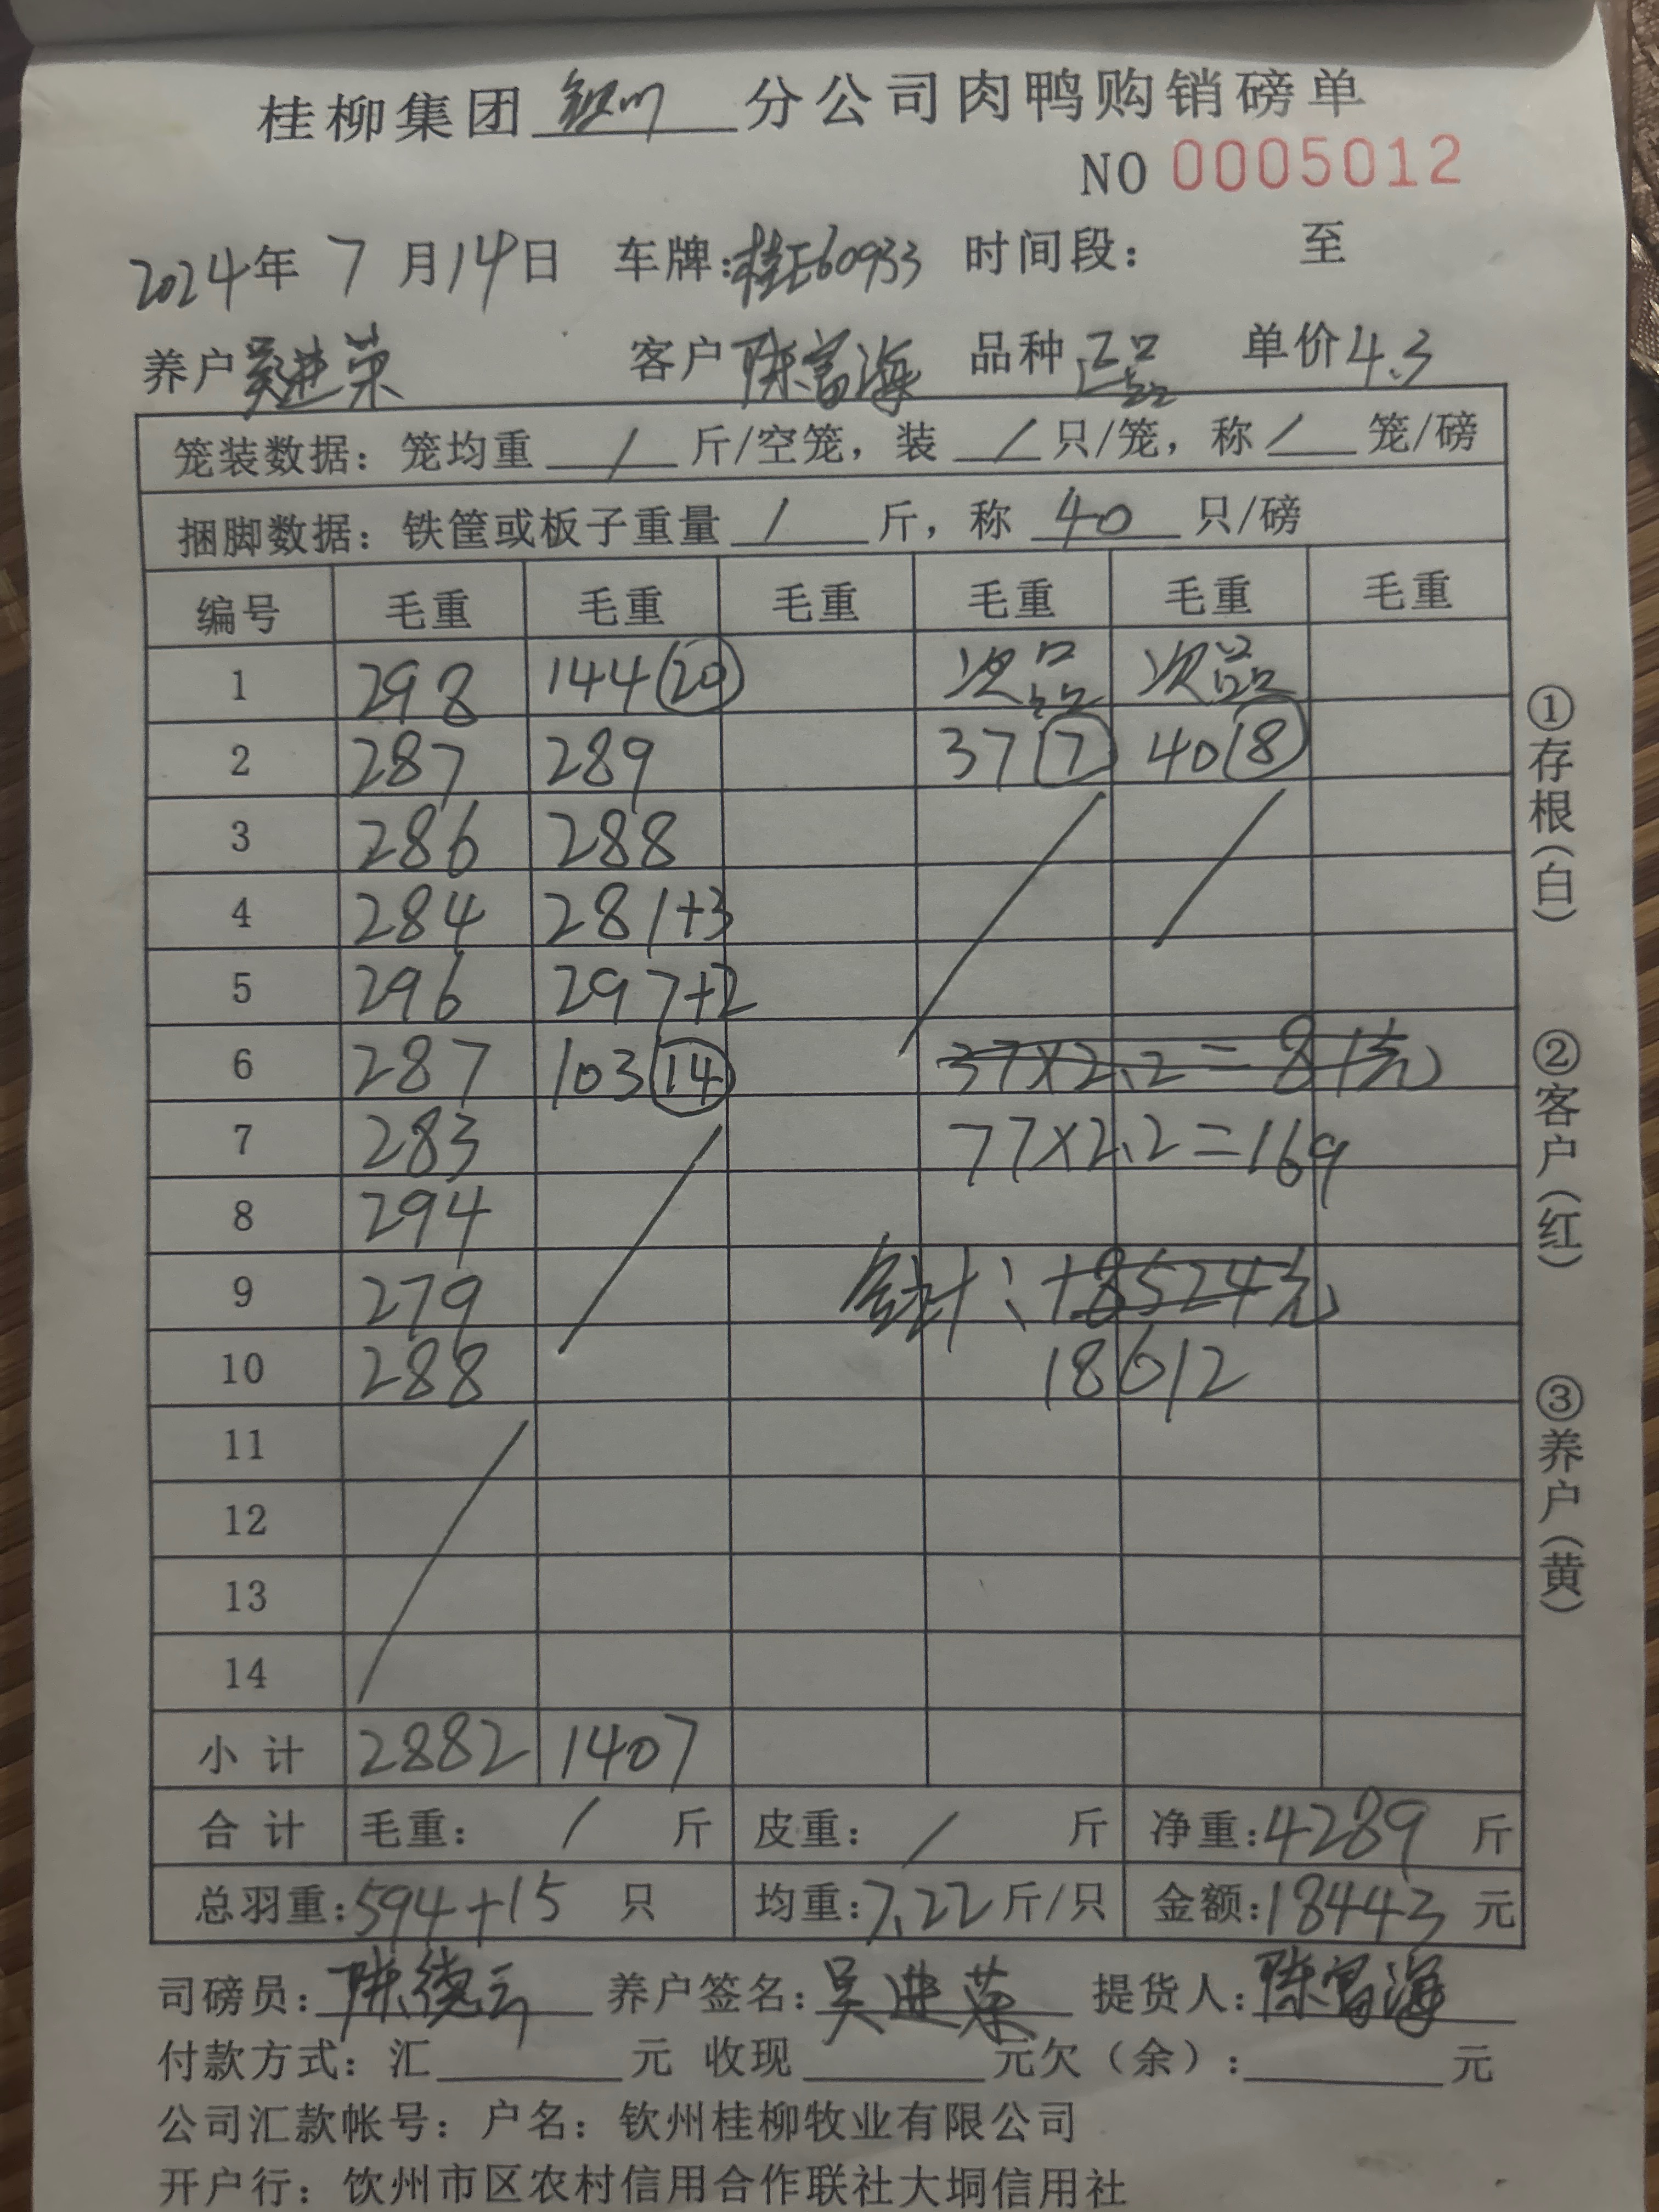 桂柳集团 钦州 分公司肉鸭购销磅单
NO 0005012
2024年 7 月14日 车牌:桂E60933 时间段: 至
养户 吴进荣 客户 陈富海 品种 正品 单价 4.3
笼装数据: 笼均重 / 斤/空笼, 装 / 只/笼, 称 / 笼/磅
捆脚数据: 铁筐或板子重量 / 斤, 称 40 只/磅
编号 毛重 毛重 毛重 毛重 毛重 毛重
1 298 144(20) 次品 次品
2 287 289 37(7) 40(8)
3 286 288
4 284 281+3
5 296 297+2
6 287 103(14) 37×2.2=81元
7 283 77×2.2=169
8 294
9 279 合计: 18524元
10 288 18612
11
12
13
14
小计 2882 1407
合计 毛重: / 斤 皮重: / 斤 净重:4289 斤
总羽重:594+15 只 均重:7.22斤/只 金额:18443 元
司磅员: 陈德云 养户签名: 吴进荣 提货人: 陈富海
付款方式: 汇 元 收现 元欠(余): 元
公司汇款帐号: 户名: 钦州桂柳牧业有限公司
开户行: 饮州市区农村信用合作联社大垌信用社
①存根(白)
②客户(红)
③养户(黄)